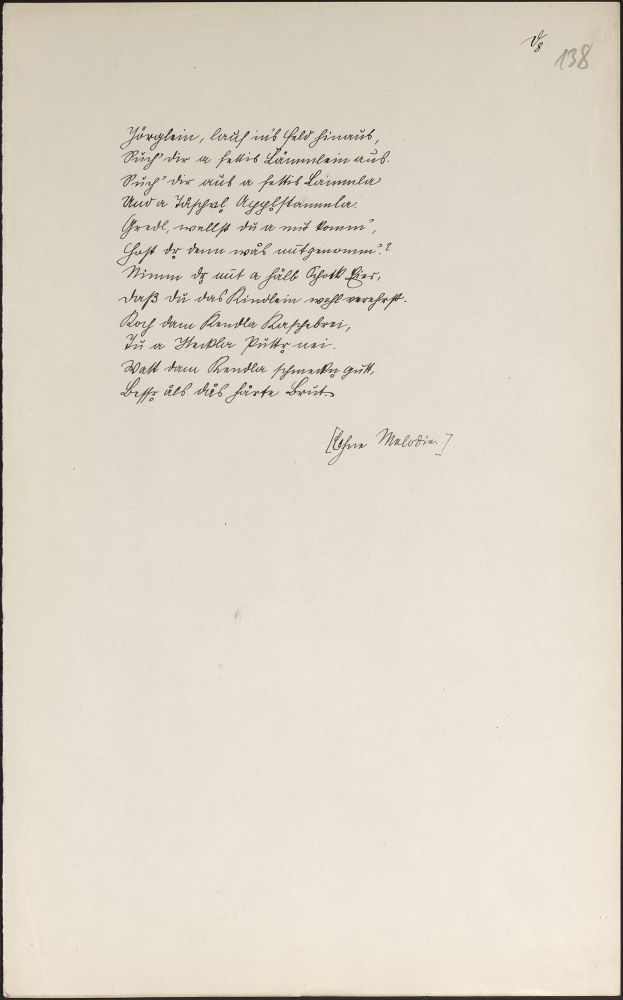 138
Jörglein, lauf in's Feld hinaus,
Such' dir a fettis Lämmlein aus.
Such' dir aus a fettis Lämmla
Und a Täschel Applstammla.
Gredl, wellst du a mit komm',
Host dr denn wås mitgenomm'?
Nimm dr mit a hålb Schock Eier,
Daß du das Kindlein wohl verehrst.
Koch dam Kendla Kaschebrei,
Tu a Steckla Puttr nei.
Watt dam Kendla schmeckn gutt,
Bessr åls dås hårte Brut.
[Ohne Melodie.]